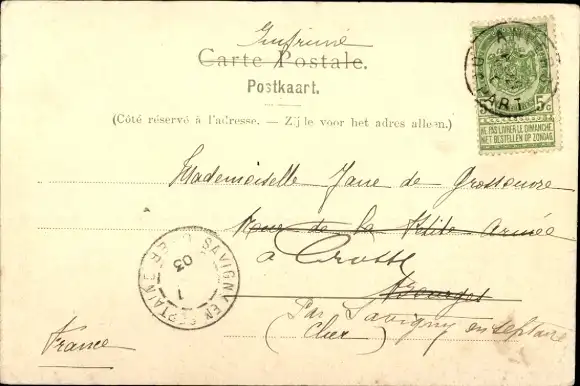 Imprimé
Carte Postale.
Postkaart.
(Côté réservé à l'adresse. — Zijde voor het adres alleen.)
ANVERS
DÉPART
5c
NE PAS LIVRER LE DIMANCHE
NIET BESTELLEN OP ZONDAG
Mademoiselle Jane de Grossouvre
Rue de la Petite Armée
à Crosses
Bourges
Par Savigny en septaine
(Cher)
SAVIGNY EN SEPTAINE
1
03
France